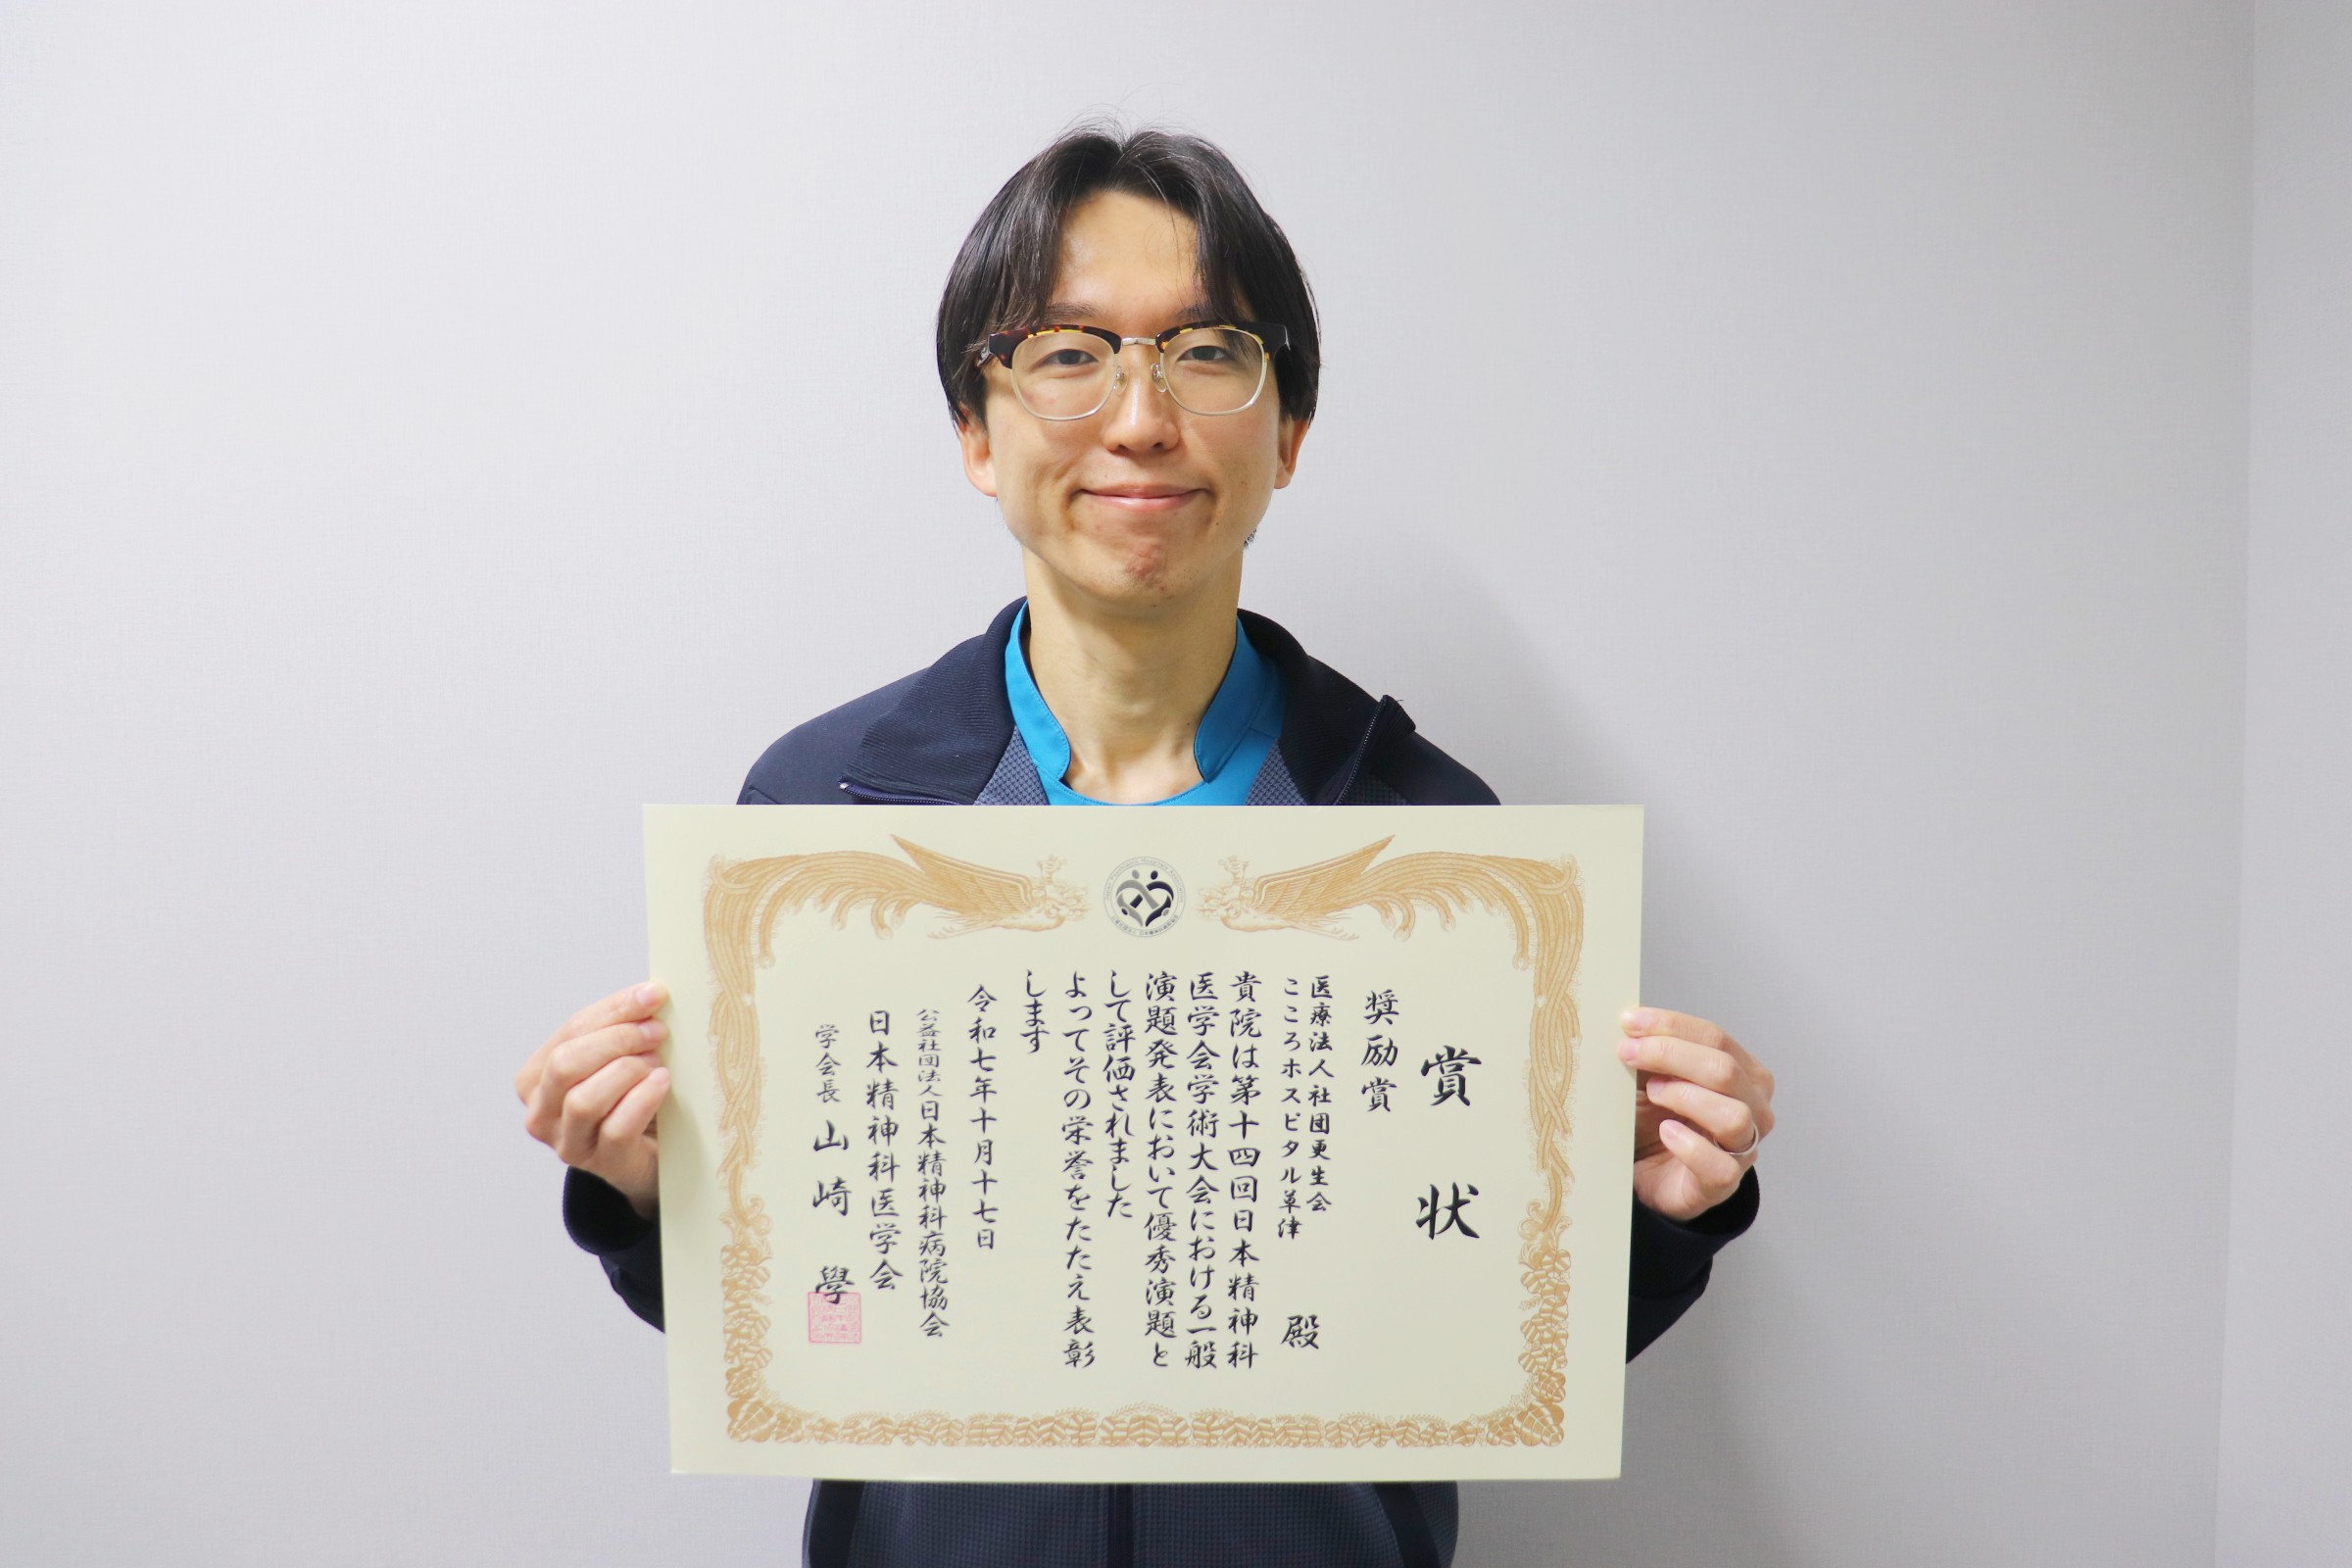 賞状
奨励賞
医療法人社団更生会
こころホスピタル草津 殿
貴院は第十四回日本精神科
医学会学術大会における一般
演題発表において優秀演題と
して評価されました
よってその栄誉をたたえ表彰
します
令和七年十月十七日
公益社団法人日本精神科病院協会
日本精神科医学会
学会長 山崎 學